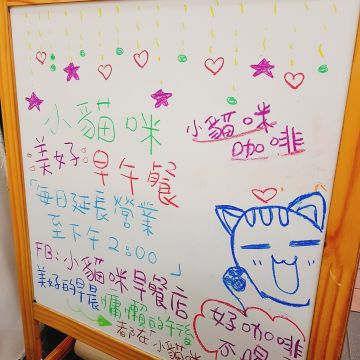 小貓咪
小貓咪
咖啡
美好:早午餐
「每日延長營業
至下午2:00」
FB:小貓咪早餐店
美好的早晨
慵懶的午後
都在「小貓咪
好咖啡